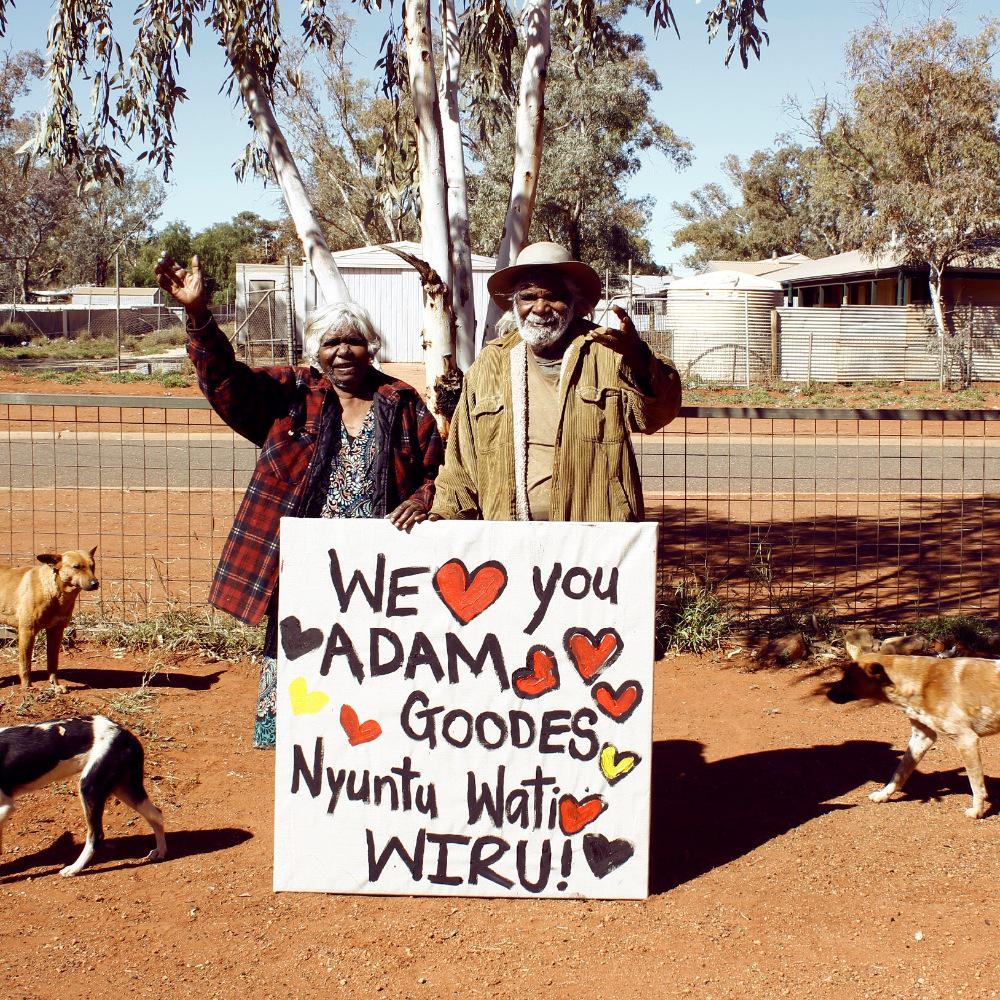 WE ❤ you
ADAM
GOODES
Nyuntu Wati
WIRU!